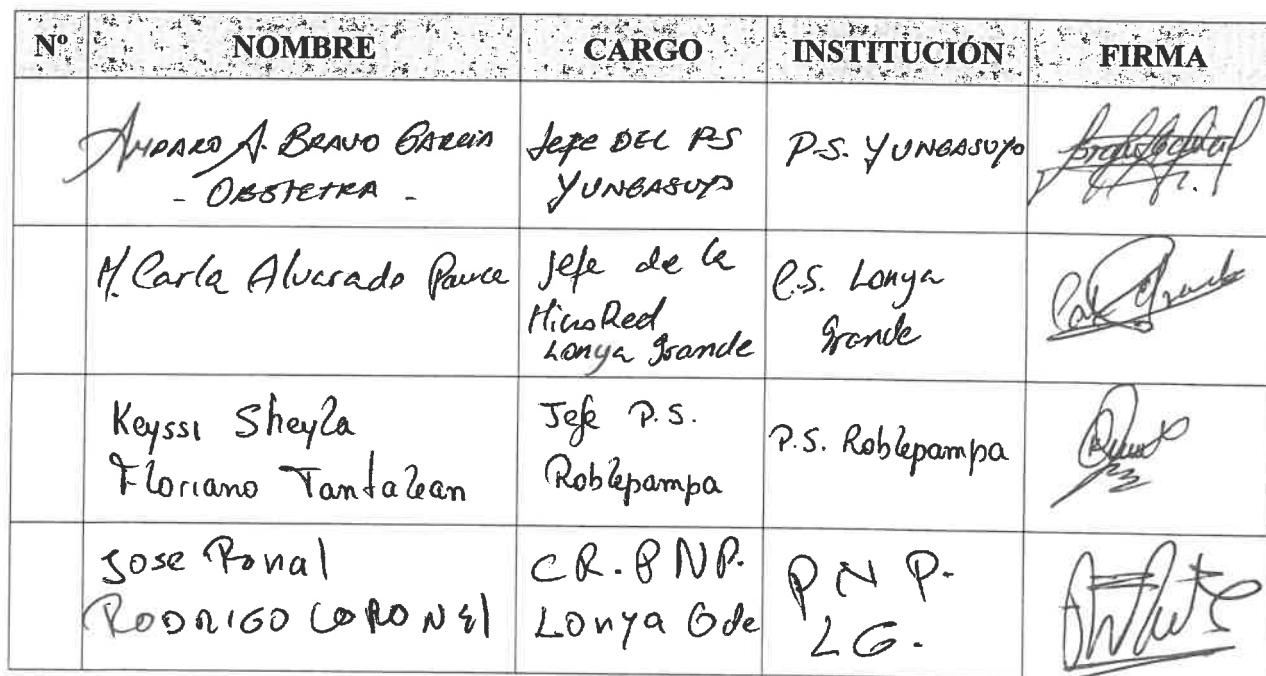 Nº NOMBRE CARGO INSTITUCIÓN FIRMA
AMPARO A. BRAVO GARCIA
- OBSTETRA -
Jefe DEL PS
YUNGASUYO
P.S. YUNGASUYO
M. Carla Alvarado
Jefe de la
MicroRed
Lonya Grande
C.S. Lonya
Grande
Keyssi Sheyla
Floriano Tantalean
Jefe P.S.
Roblepampa
P.S. Roblepampa
Jose Ronal
RODRIGO CORONEl
CR. PNP.
Lonya Gde
PNP.
LG.